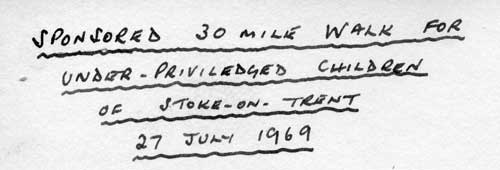 SPONSORED 30 MILE WALK FOR
UNDER-PRIVILEDGED CHILDREN
OF STOKE-ON-TRENT
27 JULY 1969